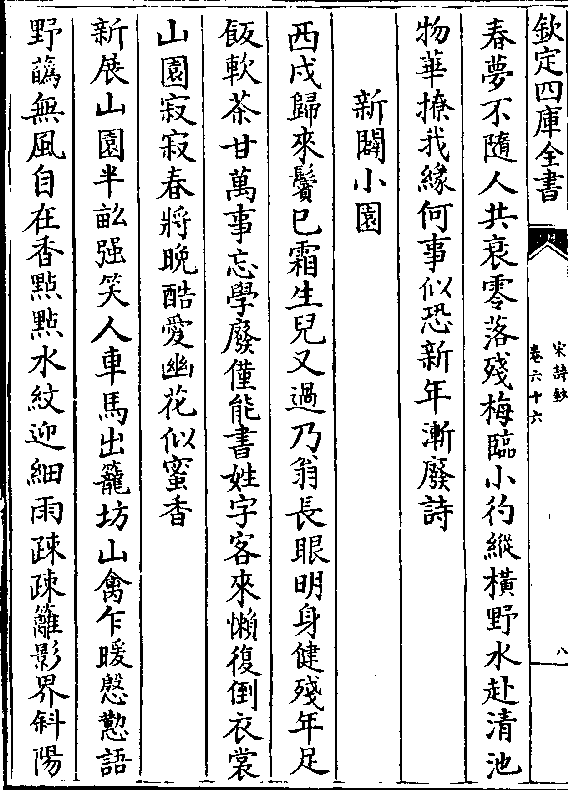 欽定四庫全書
宋詩鈔
卷六十六
八
春夢不隨人共衰零落殘梅臨小彴縱横野水赴清池
物華撩我緣何事似恐新年漸廢詩
新闢小園
西戍歸來鬢已霜生兒又過乃翁長眼明身健殘年足
飯軟茶甘萬事忘學廢僅能書姓字客來懶復倒衣裳
山園寂寂春將晚酷愛幽花似蜜香
新展山園半畝强笑人車馬出籠坊山禽乍暖慇懃語
野蘤無風自在香點點水紋迎細雨疎疎籬影界斜陽